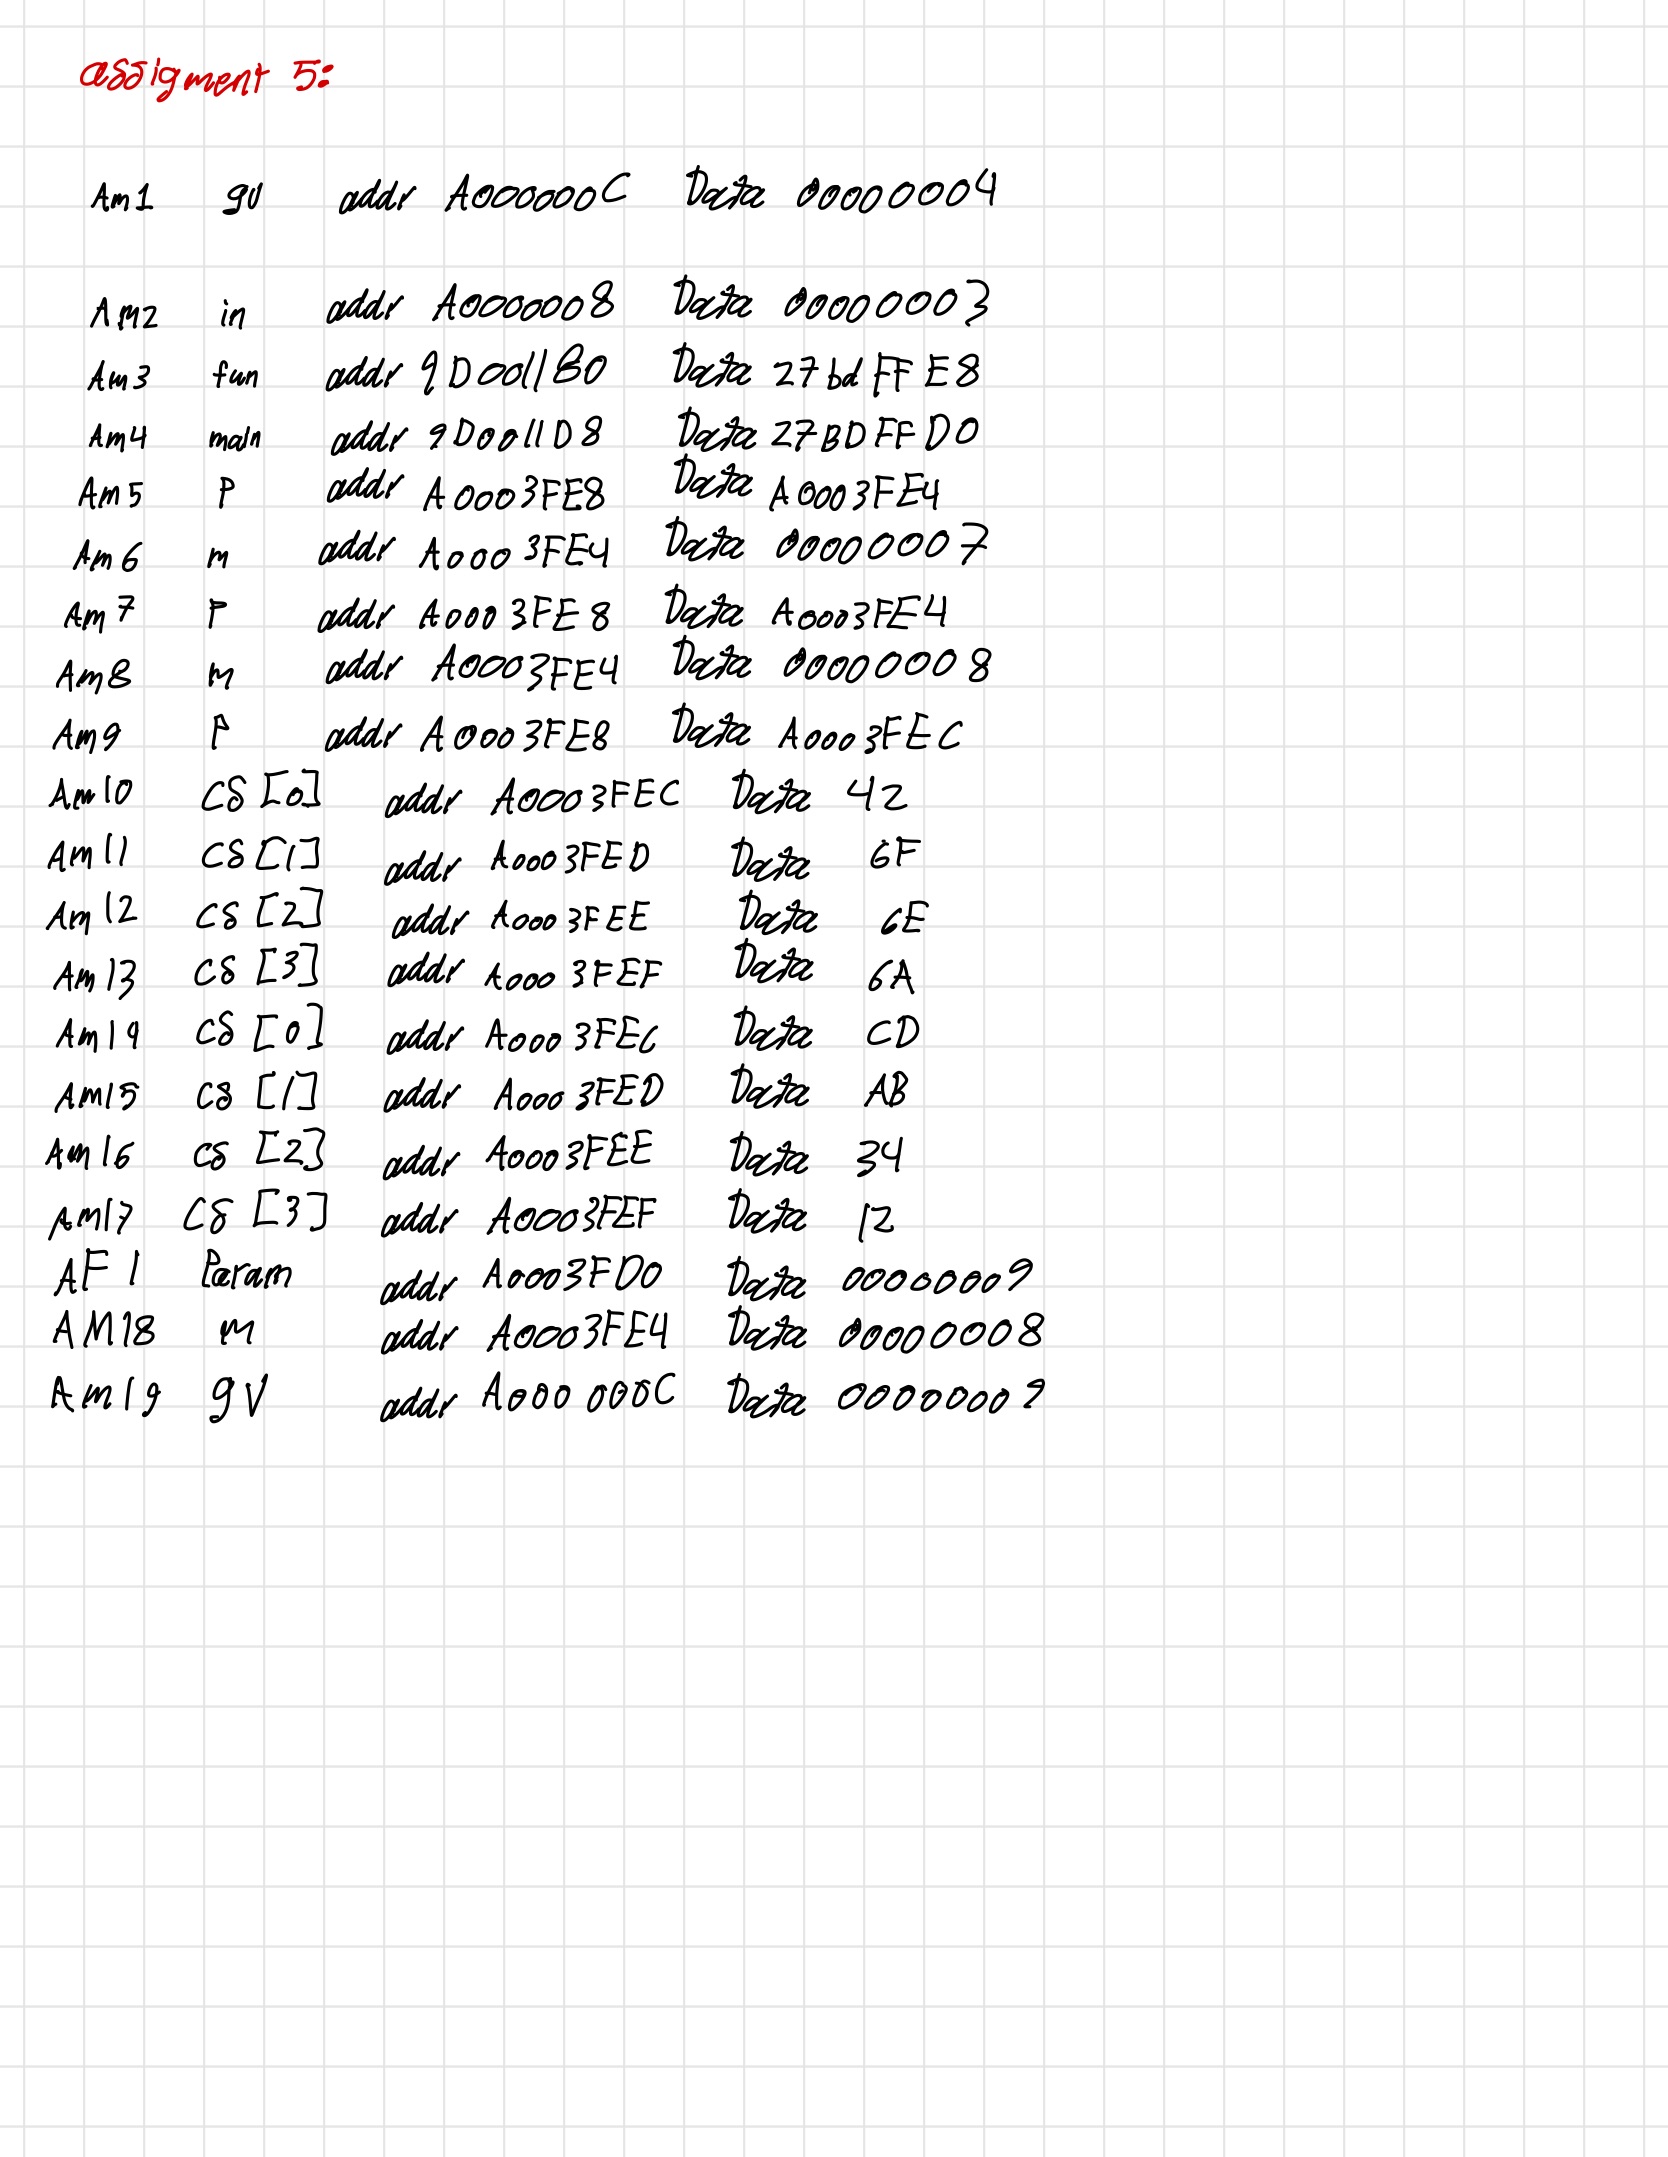 assigment 5:
Am1 gv addr A000000C Data 00000004
Am2 in addr A0000008 Data 00000003
Am3 fun addr 9D0011B0 Data 27bdFFE8
Am4 main addr 9D0011D8 Data 27BDFFD0
Am5 P addr A0003FE8 Data A0003FE4
Am6 m addr A0003FE4 Data 00000007
Am7 P addr A0003FE8 Data A0003FE4
Am8 m addr A0003FE4 Data 00000008
Am9 P addr A0003FE8 Data A0003FEC
Am10 CS [0] addr A0003FEC Data 42
Am11 CS [1] addr A0003FED Data 6F
Am12 CS [2] addr A0003FEE Data 6E
Am13 CS [3] addr A0003FEF Data 6A
Am14 CS [0] addr A0003FEC Data CD
Am15 CS [1] addr A0003FED Data AB
Am16 CS [2] addr A0003FEE Data 34
Am17 CS [3] addr A0003FEF Data 12
AF1 Param addr A0003FD0 Data 00000009
AM18 m addr A0003FE4 Data 00000008
Am19 gV addr A000000C Data 00000009